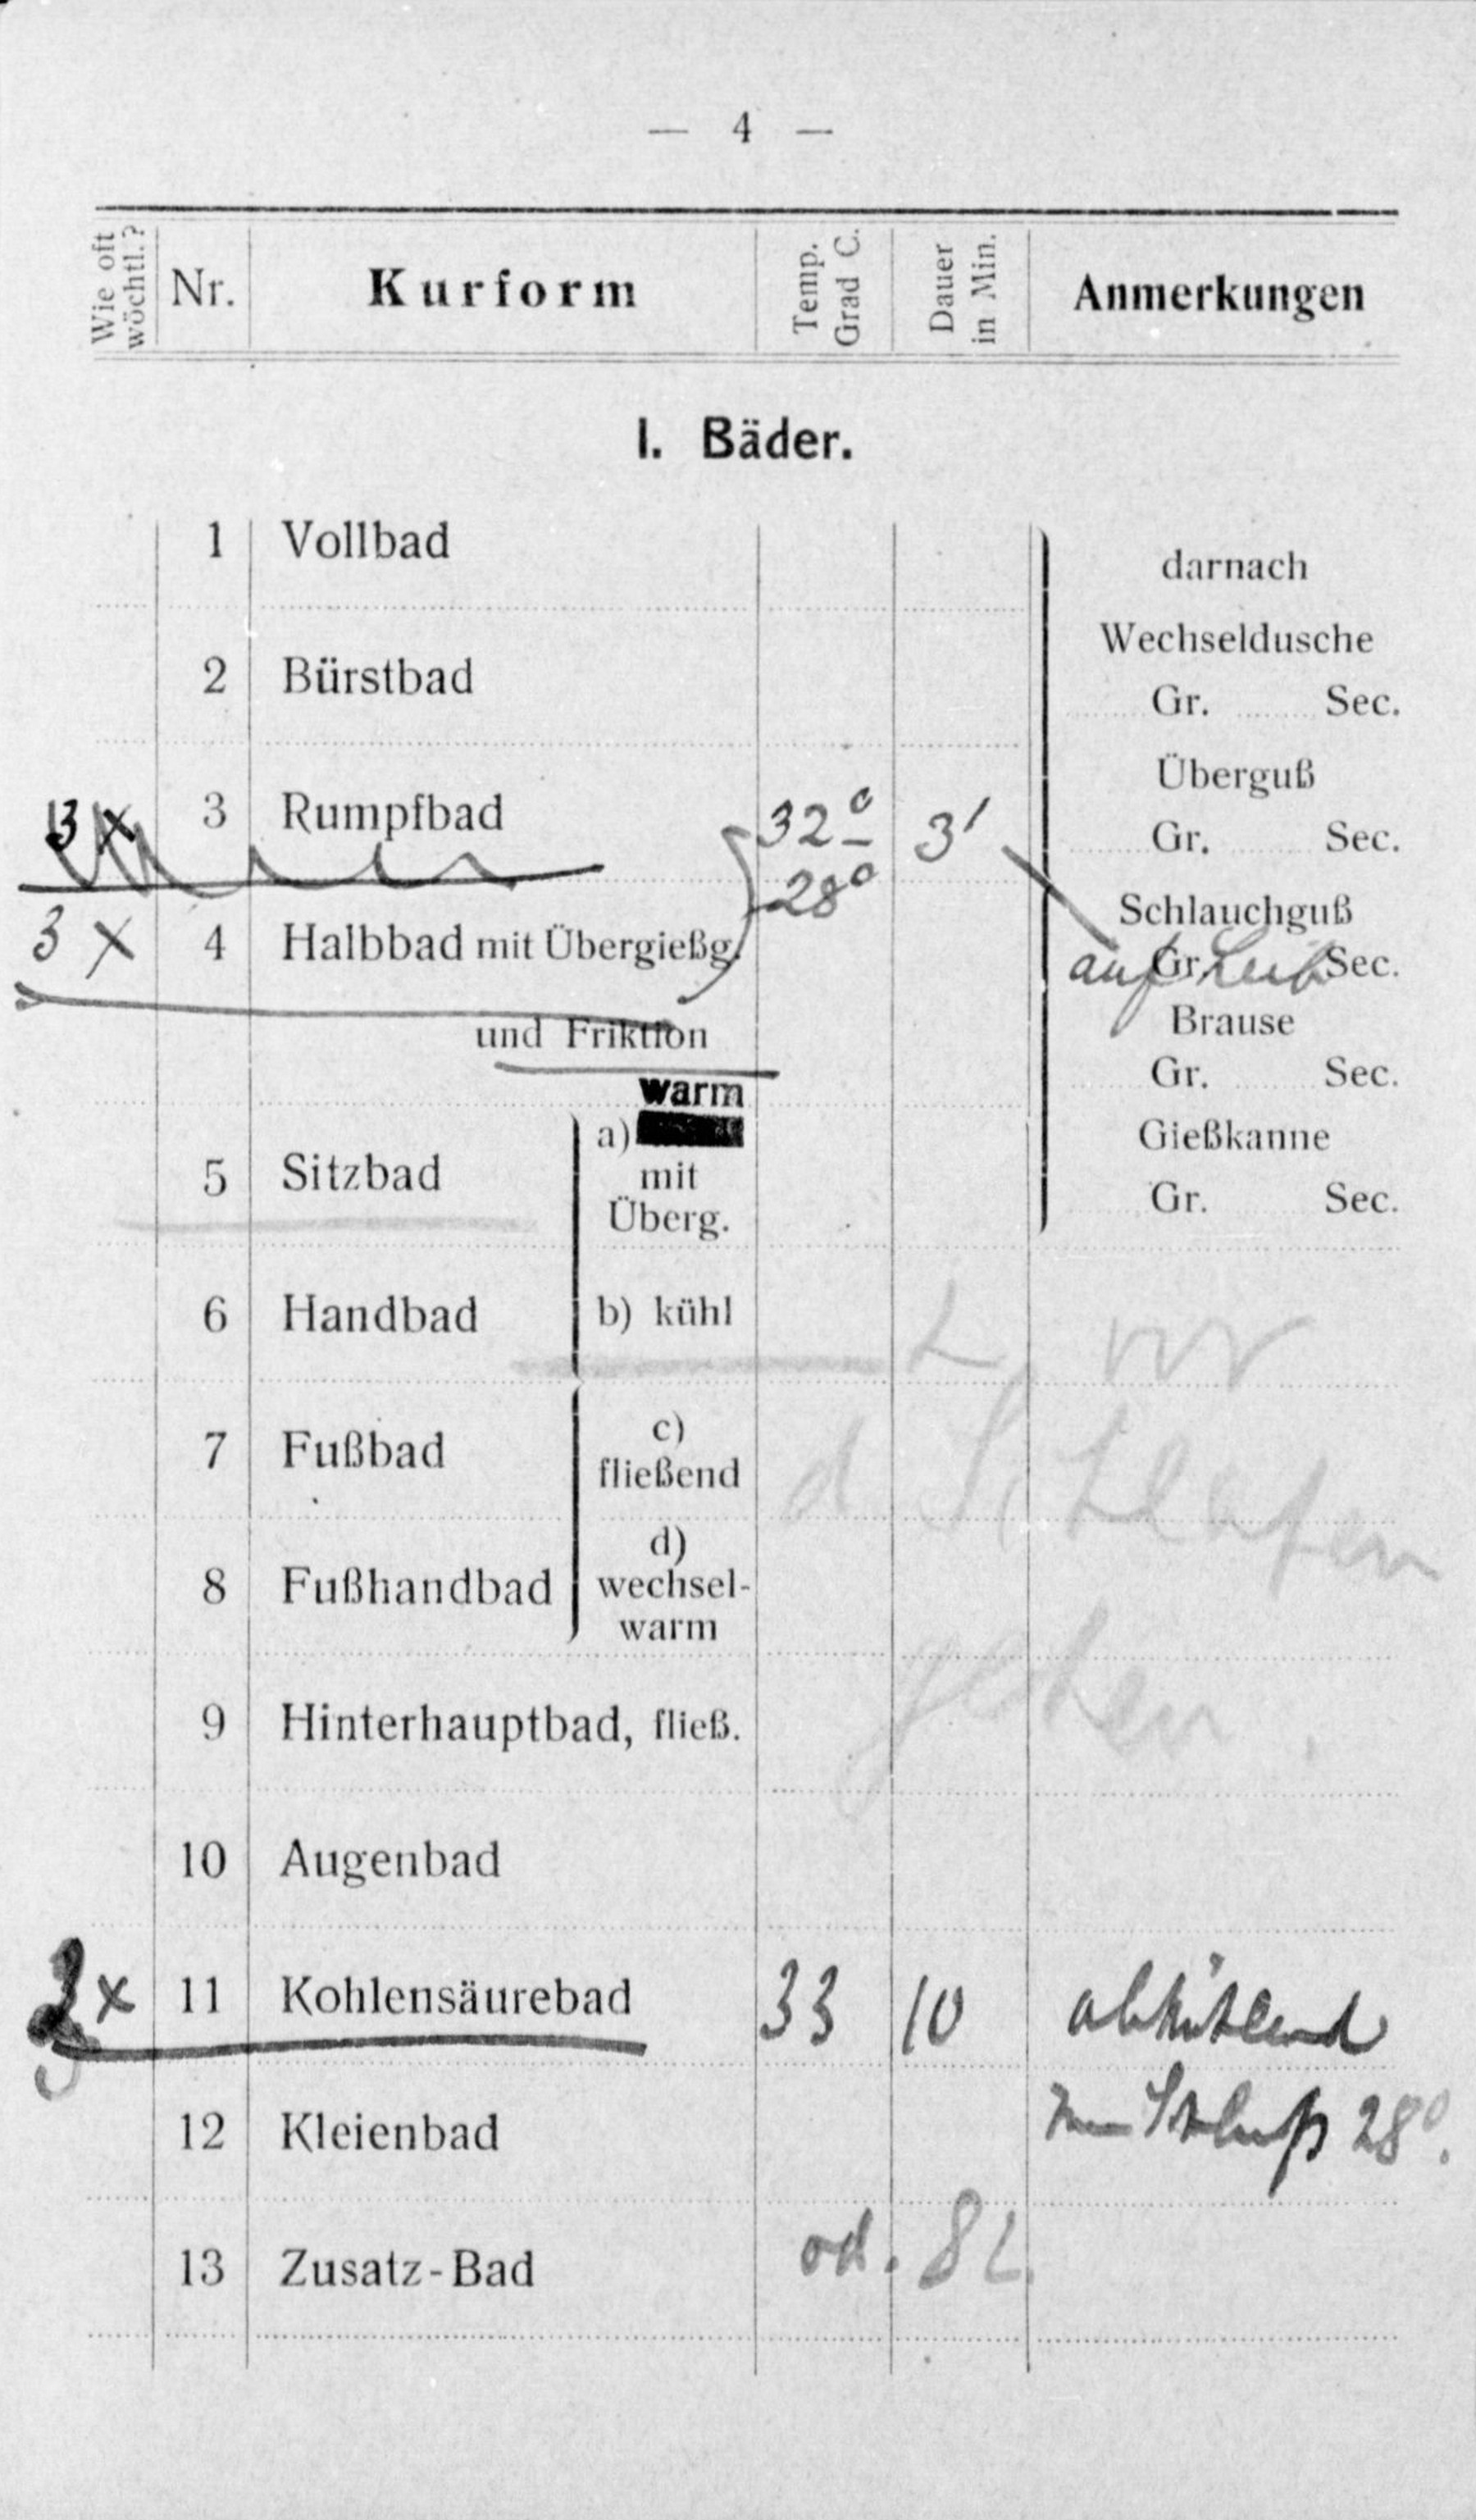 — 4 —
Wie oft wöchtl.? Nr. Kurform Temp. Grad C. Dauer in Min. Anmerkungen
I. Bäder.
1 Vollbad
darnach
Wechseldusche
2 Bürstbad
Gr. Sec.
Überguß
3 x 3 Rumpfbad 32° – 28° 3'
Gr. Sec.
Schlauchguß
3 x 4 Halbbad mit Übergießg.
Gr. Sec.
auf Leib
und Friktion
Brause
Gr. Sec.
warm
a)
Gießkanne
5 Sitzbad mit
Überg.
Gr. Sec.
6 Handbad b) kühl
vor
7 Fußbad c)
fließend
d. Schlafen
8 Fußhandbad d)
wechsel-
warm
gehen.
9 Hinterhauptbad, fließ.
10 Augenbad
2 x 11 Kohlensäurebad 33 10 abkühlend
12 Kleienbad zum Schluß 28°.
od. 8
13 Zusatz-Bad